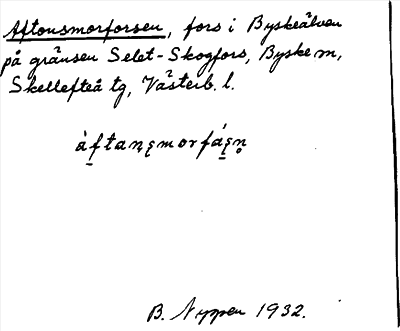 Aftonsmorforsen, fors i Byskeälven
på gränsen Selet-Skogfors, Byske m,
Skellefteå tg, Västerb. l.
B. Nyppen 1932.